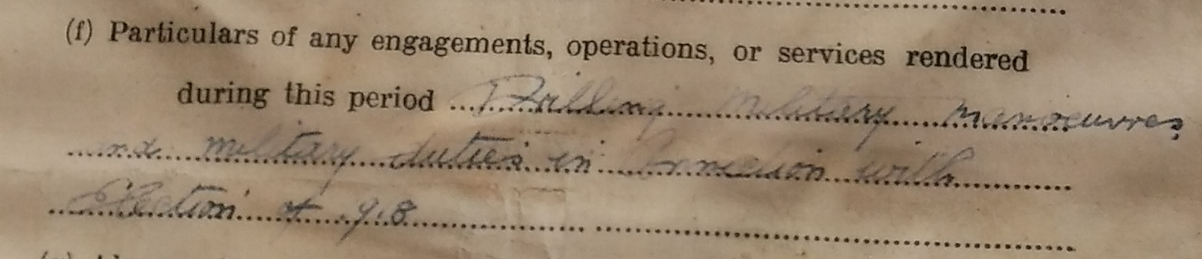 (f) Particulars of any engagements, operations, or services rendered
during this period Drilling Military manoeuvres
and military duties in Connection with
Election of 1918